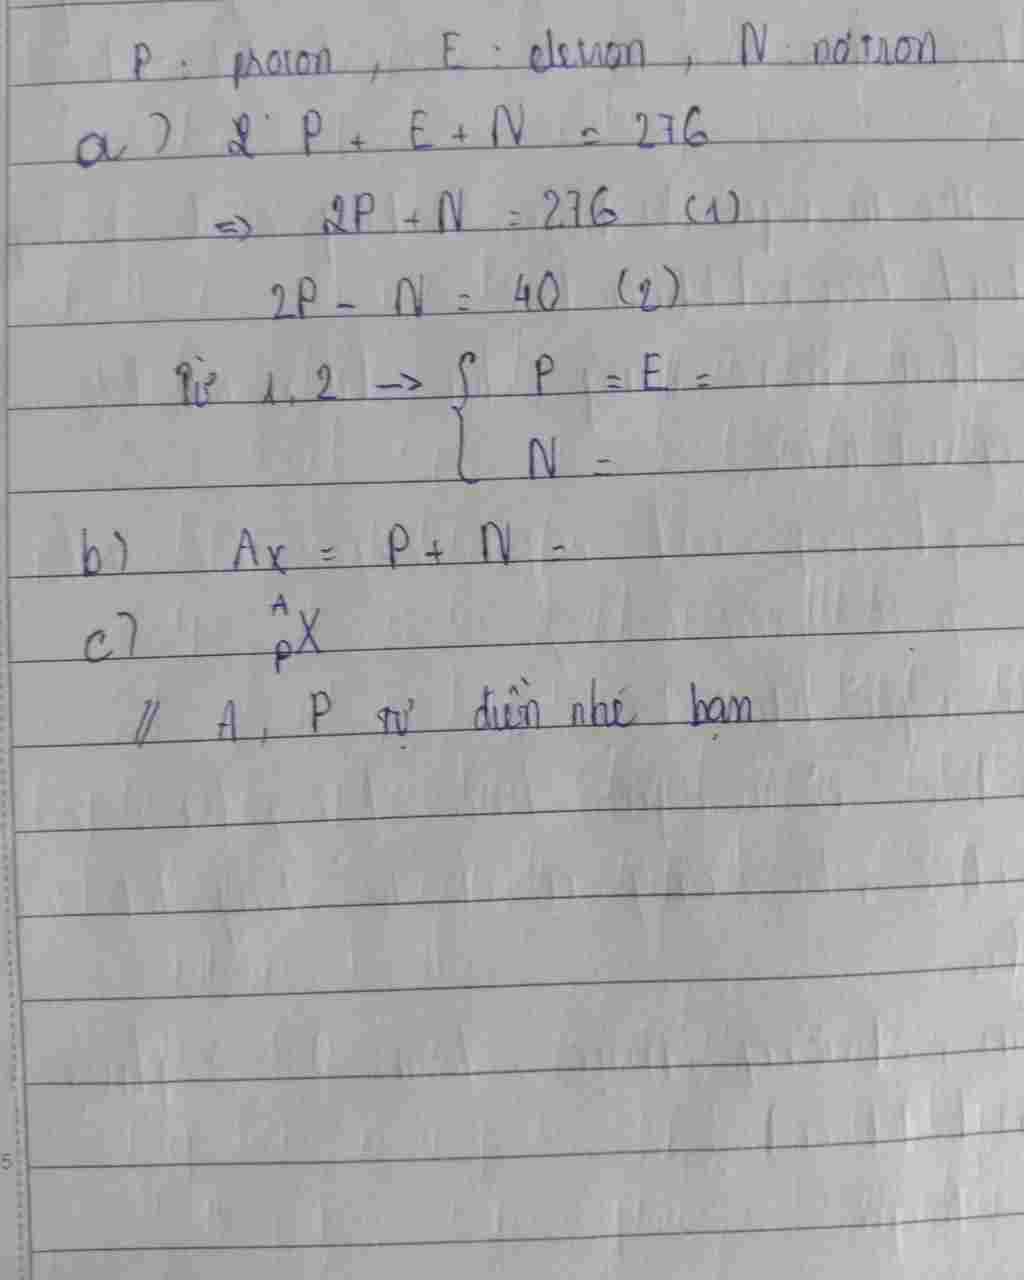 P : proton , E : electron , N : nơtron
a) P + E + N = 276
=> 2P + N = 276 (1)
2P - N = 40 (2)
Từ 1, 2 -> { P = E =
N =
b) Ax = P + N =
c) A P X
// A, P tự điền nhé bạn
5